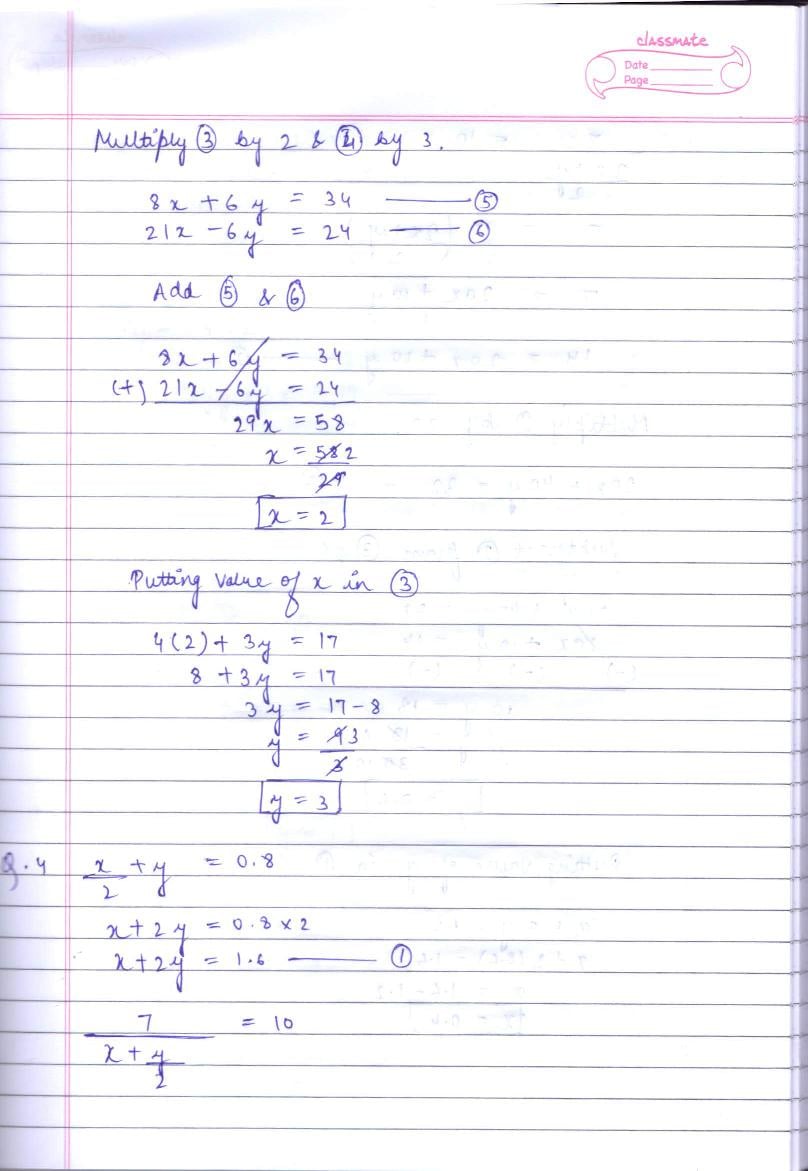 classmate
Date
Page
Multiply ③ by 2 & ④ by 3.
8x + 6y = 34 ——— ⑤
21x - 6y = 24 ——— ⑥
Add ⑤ & ⑥
8x + 6y = 34
(+) 21x - 6y = 24
29x = 58
x = 58 2
29
x = 2
Putting value of x in ③
4(2) + 3y = 17
8 + 3y = 17
3y = 17 - 8
y = 9 3
3
y = 3
Q.4 x/2 + y = 0.8
x + 2y = 0.8 × 2
x + 2y = 1.6 ——— ①
7 = 10
x + y/2